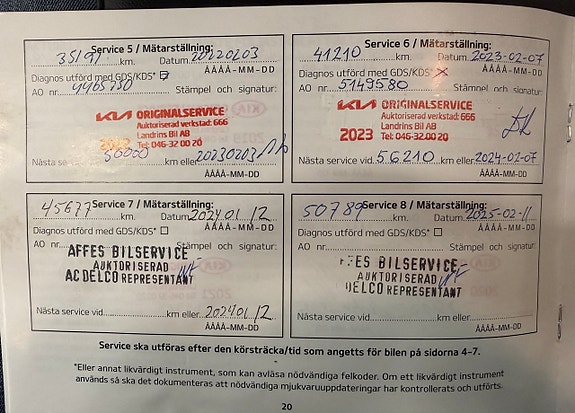 Service 5 / Mätarställning:
35191 km. Datum 20220203
Diagnos utförd med GDS/KDS*
ÅÅÅÅ-MM-DD
AO nr 4465750 Stämpel och signatur:
KIA ORIGINALSERVICE
Auktoriserad verkstad: 666
Landrins Bil AB
Tel: 046-32 00 20
Nästa service vid 50000 km eller 20230203
ÅÅÅÅ-MM-DD
Service 6 / Mätarställning:
41210 km. Datum 2023-02-07
Diagnos utförd med GDS/KDS*
ÅÅÅÅ-MM-DD
AO nr 5149580 Stämpel och signatur:
KIA ORIGINALSERVICE
Auktoriserad verkstad: 666
Landrins Bil AB
2023 Tel: 046-32 00 20
Nästa service vid 56210 km eller 2024-02-07
ÅÅÅÅ-MM-DD
Service 7 / Mätarställning:
45677 km. Datum 20240112
Diagnos utförd med GDS/KDS*
ÅÅÅÅ-MM-DD
AO nr Stämpel och signatur:
AFFES BILSERVICE
AUKTORISERAD
ACDELCO REPRESENTANT
Nästa service vid km eller 20240112
ÅÅÅÅ-MM-DD
Service 8 / Mätarställning:
50789 km. Datum 2025-02-11
Diagnos utförd med GDS/KDS*
ÅÅÅÅ-MM-DD
AO nr Stämpel och signatur:
FES BILSERVICE
AUKTORISERAD
DELCO REPRESENTANT
Nästa service vid km eller
ÅÅÅÅ-MM-DD
Service ska utföras efter den körsträcka/tid som angetts för bilen på sidorna 4–7.
*Eller annat likvärdigt instrument, som kan avläsa nödvändiga felkoder. Om ett likvärdigt instrument
används så ska det dokumenteras att nödvändiga mjukvaruuppdateringar har kontrollerats och utförts.
20